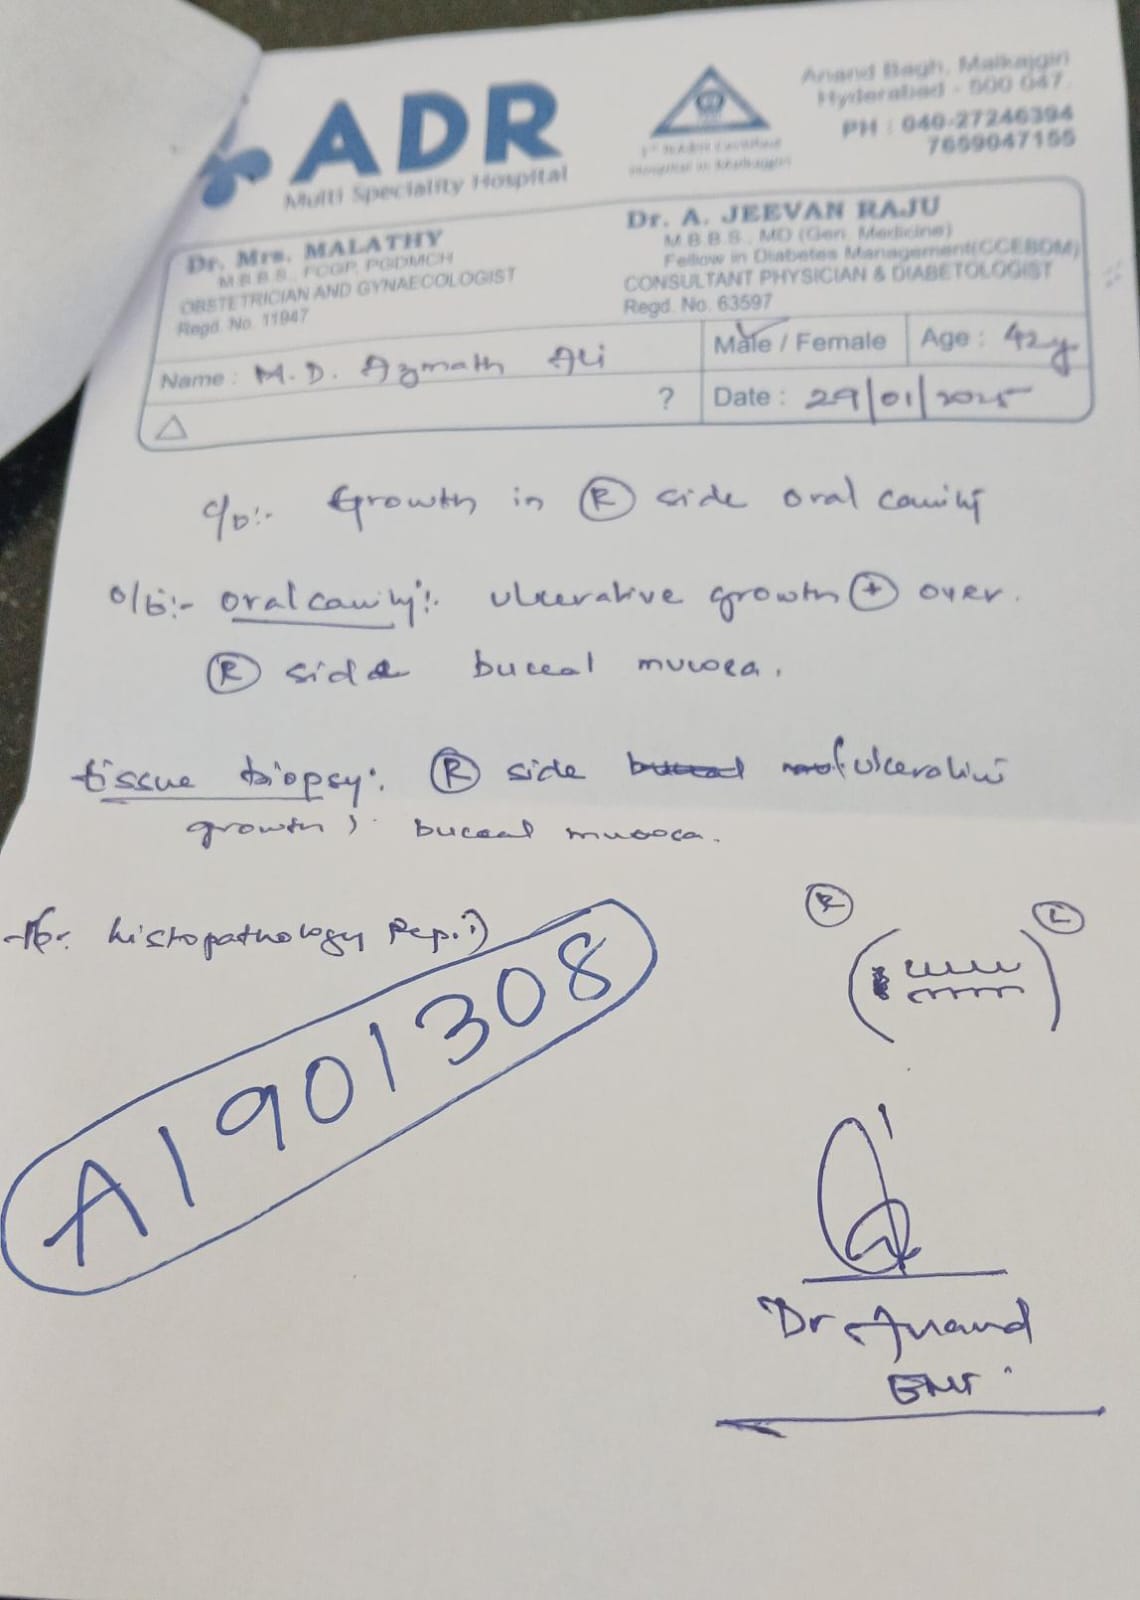 ADR
Multi Speciality Hospital
Hospital in Malkajgiri
Anand Bagh, Malkajgiri
Hyderabad - 500 047.
PH : 040-27246394
7659047155
Dr. Mrs. MALATHY
M.B.B.S., FCGP, PGDMCH
OBSTETRICIAN AND GYNAECOLOGIST
Regd. No. 11947
Dr. A. JEEVAN RAJU
M.B.B.S., MD (Gen. Medicine)
Fellow in Diabetes Management(CCEBDM)
CONSULTANT PHYSICIAN & DIABETOLOGIST
Regd. No. 63597
Name : M.D. Azmath Ali
Male / Female Age : 42y
? Date : 29/01/2025
c/o:- Growth in R side oral cavity
o/e:- oral cavity:- ulcerative growth + over.
R side buccal mucosa.
tissue biopsy: R side ulcerative
growth buccal mucosa.
for histopathology
A1901308
R L
Dr Anand
ENT